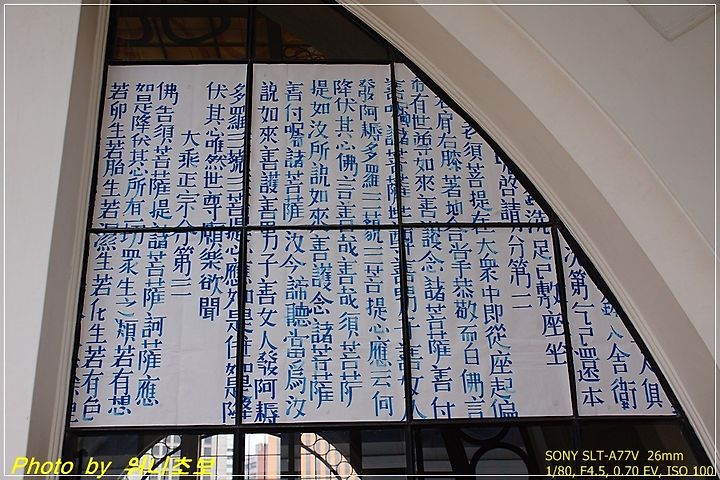 人俱
鉢入舍衛
次第乞已還本
洗足已敷座坐
啓請分第二
老須菩提在大衆中即從座起偏
右肩右膝著地合掌恭敬而白佛言
希有世尊如來善護念諸菩薩善付
善囑諸菩薩世尊善男子善女人
發阿耨多羅三藐三菩提心應云何
降伏其心佛言善哉善哉須菩
提如汝所說如來善護念諸菩薩
善付囑諸菩薩汝今諦聽當爲汝
說如來善護善男子善女人發阿耨
多羅三藐三菩提應如是住如是降
伏其心唯然世尊願樂欲聞
大乘正宗分第三
佛告須菩薩提諸菩薩訶薩應
如是降伏其心所有一切衆生之類若有想
若卵生若胎生若濕生若化生若有色
Photo by 워니초로
SONY SLT-A77V 26mm
1/80, F4.5, 0.70 EV, ISO 100